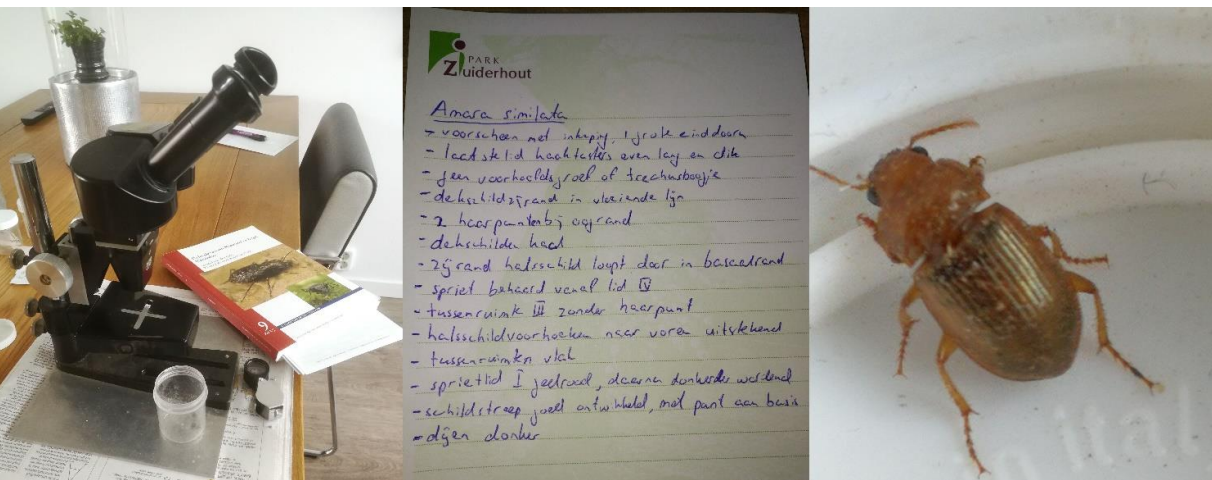 PARK
Zuiderhout
Amara similata
- voorscheen met inkeping, 1 grote einddoorn
- laatste lid kaaktasters even lang en dik
- geen voorhoofdsgroef of trechusboogje
- dekschildzijrand in vloeiende lijn
- 2 haarpunten bij oogrand
- dekschilden kaal
- zijrand halsschild loopt door in basaalrand
- spriet behaard vanaf lid IV
- tussenruimte III zonder haarpunt
- halsschildvoorhoeken naar voren uitstekend
- tussenruimten vlak
- sprietlid I geelrood, daarna donkerder wordend
- schildstreep goed ontwikkeld, met punt aan basis
- dijen donker
9
ital